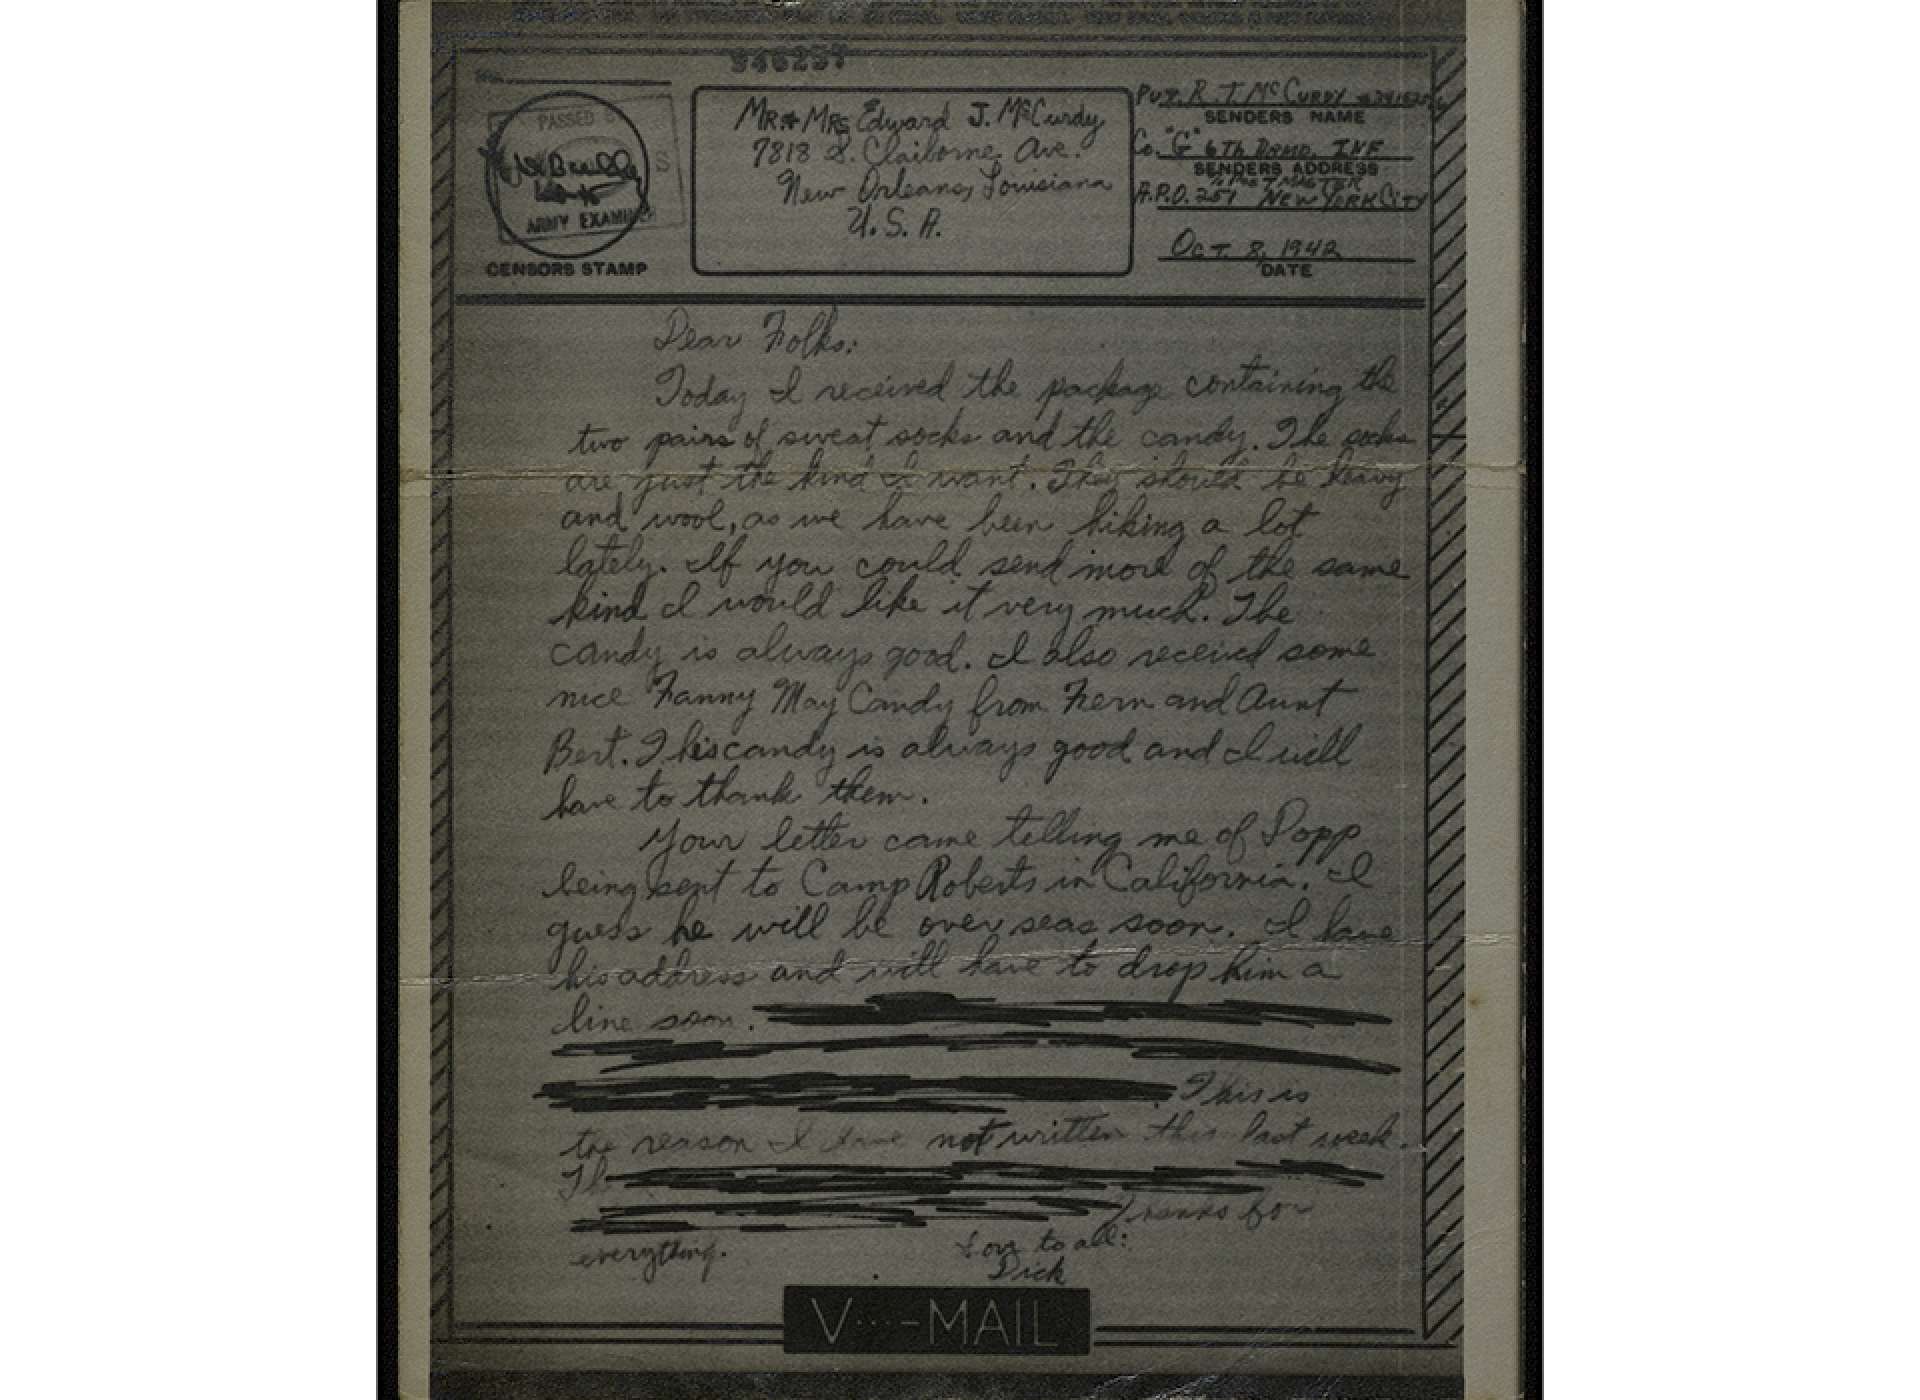 546257
PASSED
S
ARMY EXAMINER
CENSORS STAMP
MR. & MRS Edward J. McCurdy
7818 S. Claiborne Ave.
New Orleans, Louisiana
U. S. A.
Pvt. R. T. McCURDY
SENDERS NAME
Co. "G" 6th ARMD. INF
SENDERS ADDRESS
A.P.O. 251 NEW YORK CITY
OCT. 8, 1942
DATE
Dear Folks:
Today I received the package containing the
two pairs of sweat socks and the candy. The socks
are just the kind I want. They should be heavy
and wool, as we have been hiking a lot
lately. If you could send more of the same
kind I would like it very much. The
candy is always good. I also received some
nice Fanny May Candy from Fern and Aunt
Bert. This candy is always good and I will
have to thank them.
Your letter came telling me of Popp
being sent to Camp Roberts in California. I
guess he will be over seas soon. I have
his address and will have to drop him a
line soon.
This is
the reason I have not written this last week.
Th
Thanks for
everything.
Love to all:
Dick
V···—MAIL